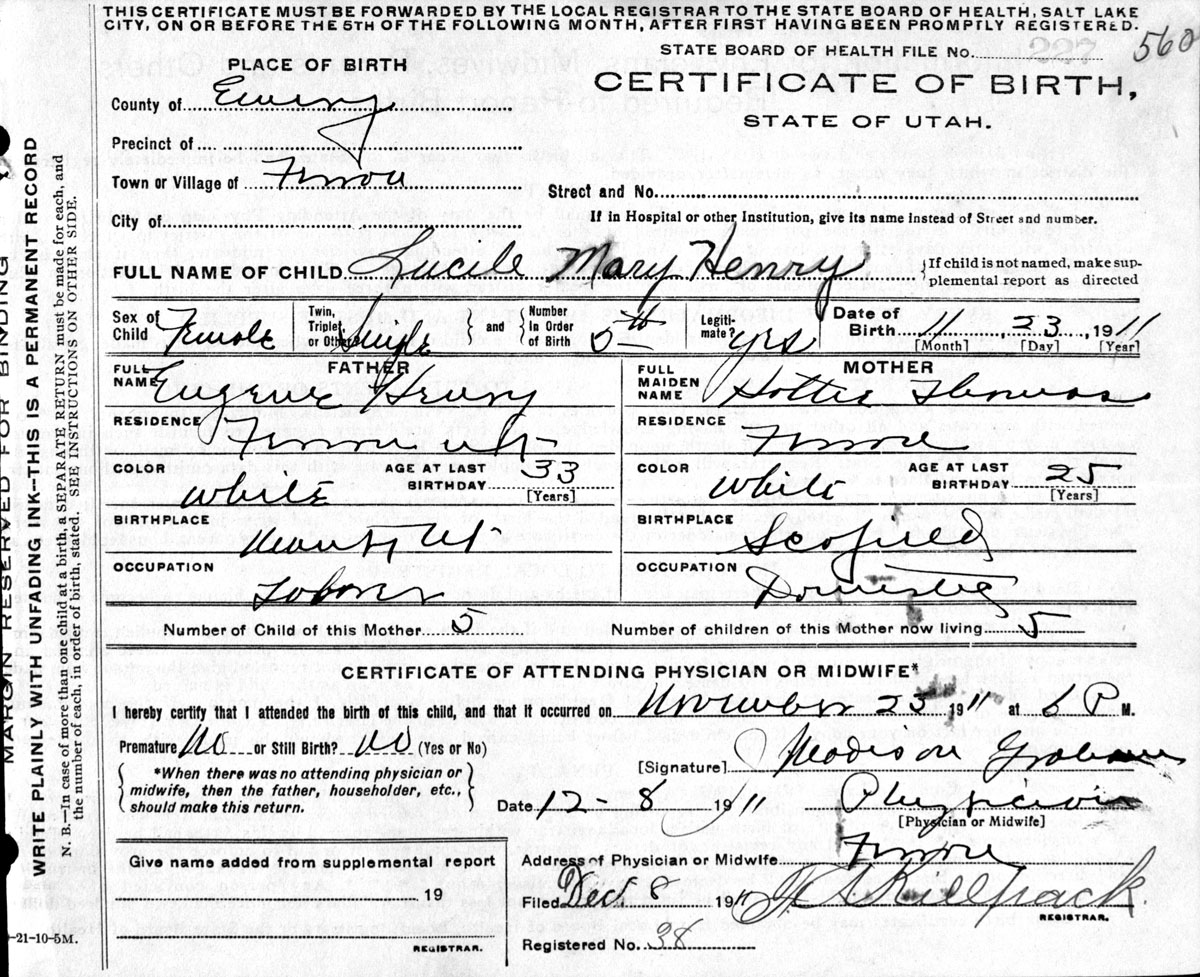 THIS CERTIFICATE MUST BE FORWARDED BY THE LOCAL REGISTRAR TO THE STATE BOARD OF HEALTH, SALT LAKE
CITY, ON OR BEFORE THE 5TH OF THE FOLLOWING MONTH, AFTER FIRST HAVING BEEN PROMPTLY REGISTERED.
STATE BOARD OF HEALTH FILE No. 227 560
PLACE OF BIRTH
CERTIFICATE OF BIRTH,
STATE OF UTAH.
County of Emery
Precinct of
Town or Village of Ferron
Street and No.
City of
If in Hospital or other Institution, give its name instead of Street and number.
FULL NAME OF CHILD Lucile Mary Henry {If child is not named, make sup-
plemental report as directed
Sex of Child Female
Twin, Triplet or Other Single
and
Number In Order of Birth 5th
Legiti- mate? yes
Date of Birth 11 23, 1911
[Month] [Day] [Year]
FATHER
FULL NAME Eugene Henry
RESIDENCE Ferron Ut
COLOR White
AGE AT LAST BIRTHDAY 33
[Years]
BIRTHPLACE Ut
OCCUPATION Laborer
MOTHER
FULL MAIDEN NAME Hattie Thomas
RESIDENCE Ferron
COLOR White
AGE AT LAST BIRTHDAY 25
[Years]
BIRTHPLACE Scofield
OCCUPATION Domestic
Number of Child of this Mother 5
Number of children of this Mother now living 5
CERTIFICATE OF ATTENDING PHYSICIAN OR MIDWIFE*
I hereby certify that I attended the birth of this child, and that it occurred on November 23 1911 at 6 P M.
Premature No or Still Birth? No (Yes or No)
*When there was no attending physician or
midwife, then the father, householder, etc.,
should make this return.
[Signature] Madison Graham
Date 12-8 1911 Physician
[Physician or Midwife]
Give name added from supplemental report
19
REGISTRAR.
Address of Physician or Midwife Ferron
Filed Dec 8 1911 Killpack
REGISTRAR.
Registered No. 38
MARGIN RESERVED FOR BINDING
WRITE PLAINLY WITH UNFADING INK—THIS IS A PERMANENT RECORD
N. B.—In case of more than one child at a birth, a SEPARATE RETURN must be made for each, and
the number of each, in order of birth, stated. SEE INSTRUCTIONS ON OTHER SIDE.
-21-10-5M.